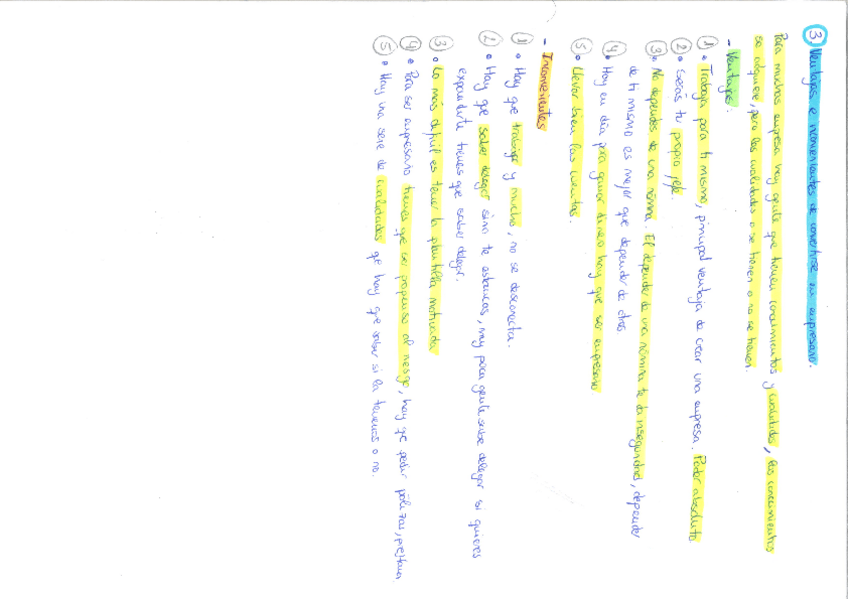 ③ Ventajas e inconvenientes de convertirse en empresario.
Para muchas empresa hay gente que tienen conocimientos y cualidades, los conocimientos
se adquiere, pero las cualidades o se tienen o no se tienen.
- Ventajas:
① • Trabaja para ti mismo, principal ventaja de crear una empresa. Poder absoluto.
② • Serás tu propio jefe.
③ • No dependes de una nómina. El depender de una nómina te da inseguridad, depender
de ti mismo es mejor que depender de otros.
④ • Hoy en día para ganar dinero hay que ser empresario
⑤ • Llevar bien las cuentas.
- Inconvenientes
① • Hay que trabajar y mucho, no se desconecta.
② • Hay que saber delegar sino te estancas, muy poca gente sabe delegar si quieres
expandirte tienes que saber delegar.
③ • Lo más difícil es tener la plantilla motivada
④ • Para ser empresario tienes que ser propenso al riesgo, hay qe pedir pólizas,
⑤ • Hay una serie de cualidades qe hay que saber si la tenemos o no.